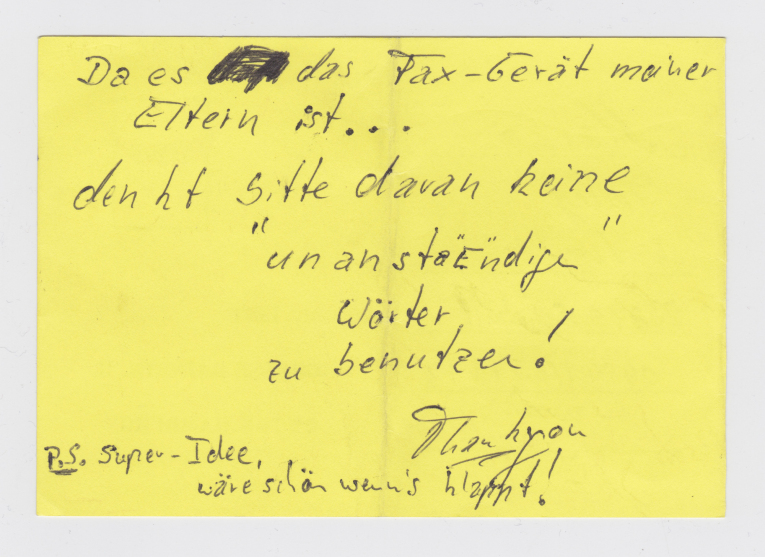 Da es das Fax-Gerät meiner
Eltern ist...
denkt bitte daran keine
"unanstäËndige"
Wörter
zu benutzen!
Thankyou
P.S. Super-Idee,
wäre schön wenn's klappt!